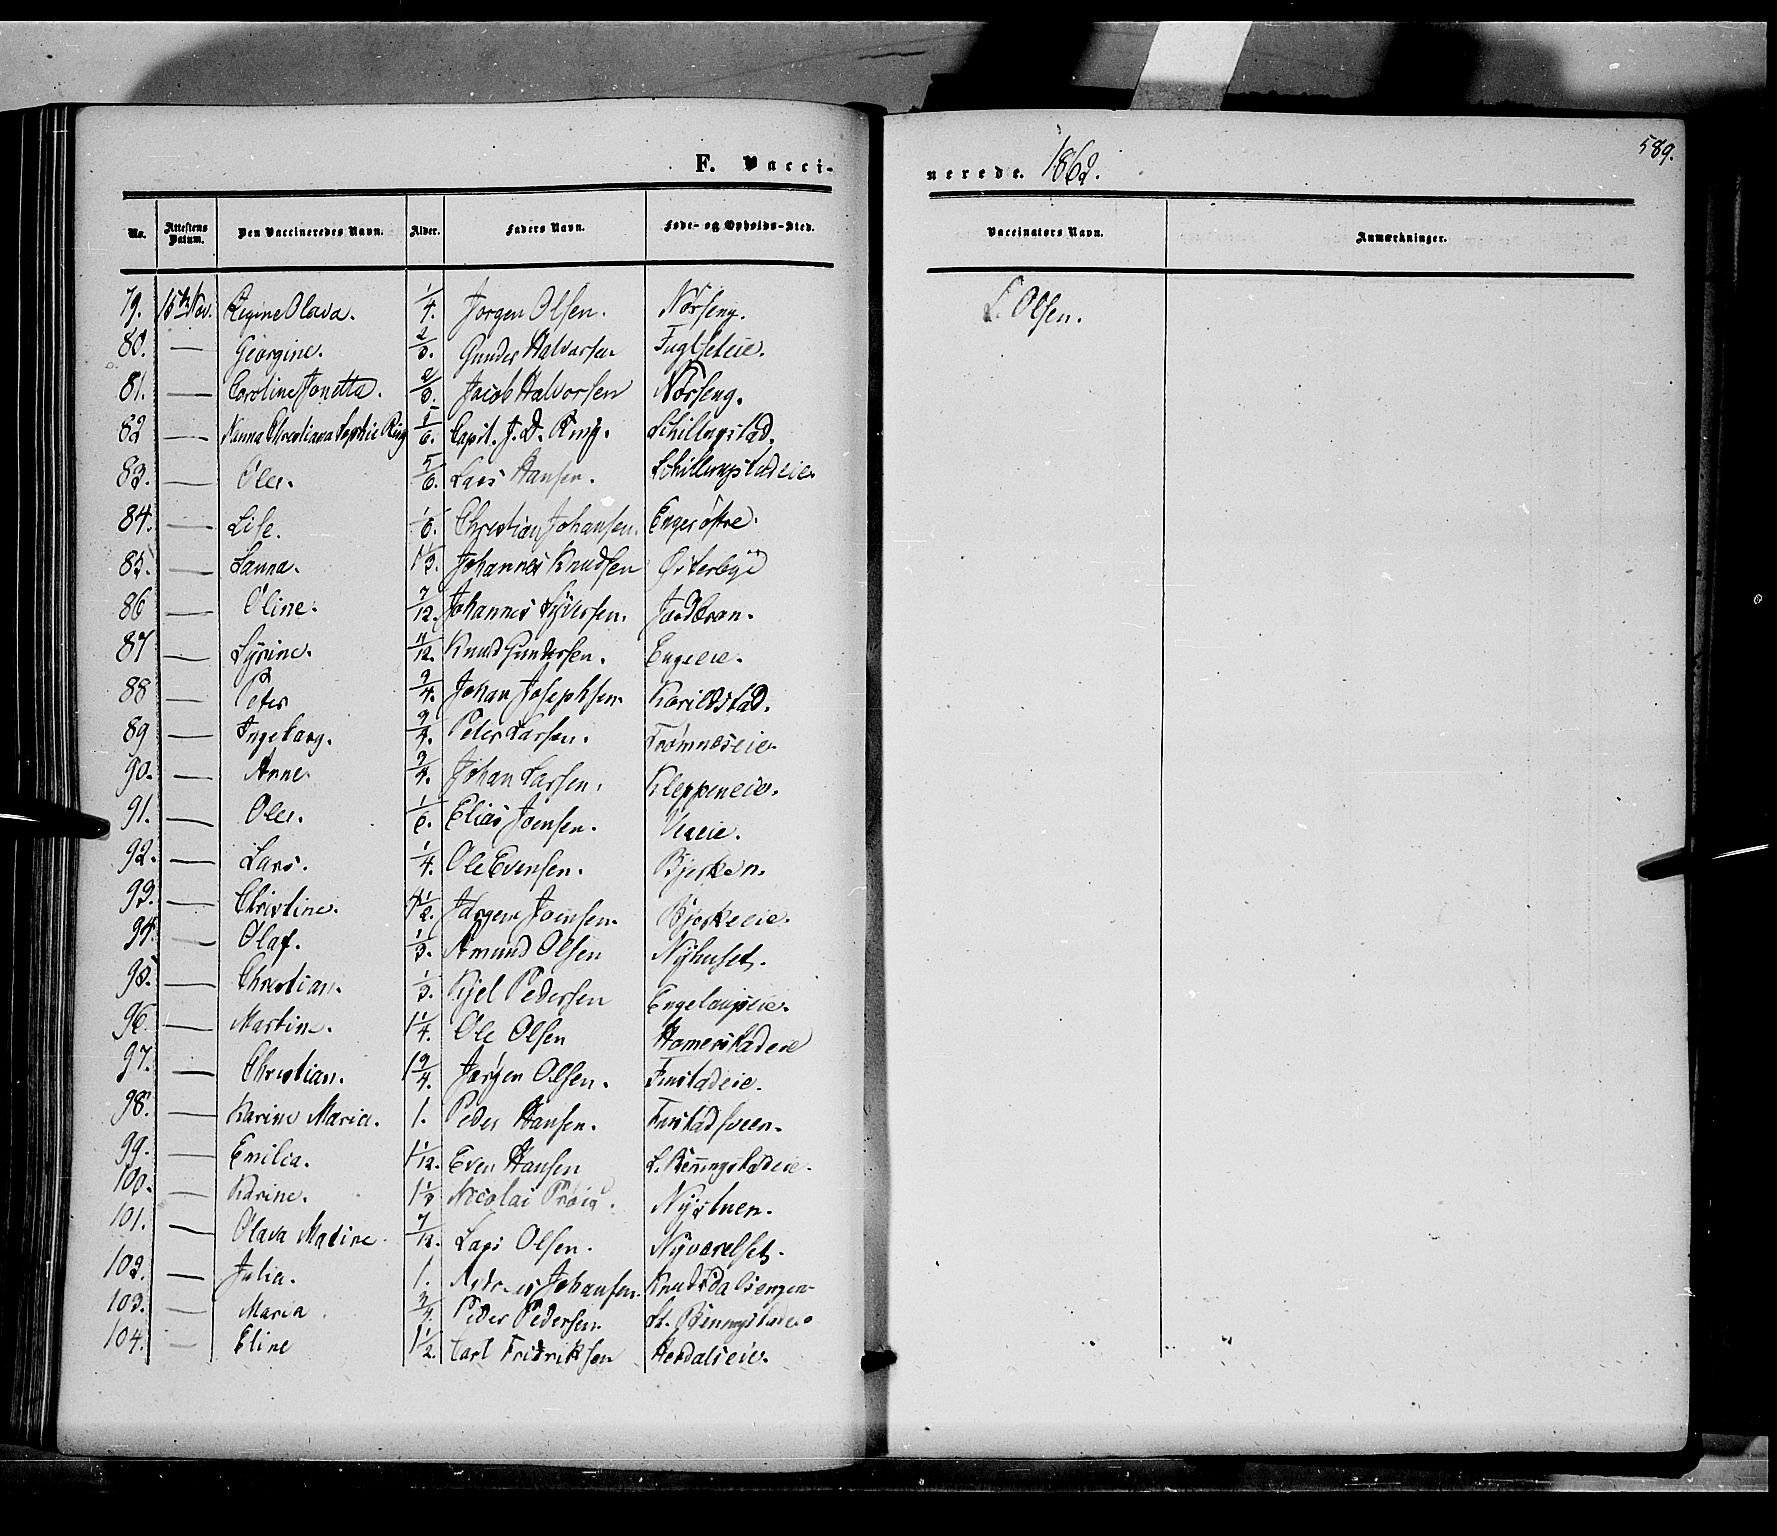 F. Vacci-
nerede. 1862.
589.
No. Attestens Datum. Den Vaccineredes Navn. Alder. Faders Navn. Føde- og Opholds-Sted. Vaccinators Navn. Anmærkninger.
79. 15de Nov. Regine Olava. 1/4. Jørgen Olsen. Nørseng. L. Olsen.
80. — Georgine. 2/3. Gunder Halvorsen Fuglseteie.
81. — Caroline Jonetta. 2/3. Jacob Halvorsen Nørseng.
82 — Nanna Christiana Sophie Ring 5/6. Capit. J. D. Ring. Schillingstad.
83. — Ole. 5/6. Lars Hansen. Schillingstadeie.
84. — Lise. 1/6. Christian Johansen. Enger østre.
85. — Launa. 1 1/3. Johannes Knudsen Østerbye
86 — Oline. 7/12. Johannes Syversen. Jordbron.
87 — Syrine. 11/12. Knud Gundersen. Engeeie.
88 — Peter 3/4. Johan Josephsen. Karildstad.
89 — Ingeborg. 3/4. Peter Larsen. Frømneseie.
90. — Anne. 3/4. Johan Larsen. Kleppeneie.
91. — Ole. 1/6. Elias Joensen.
92. — Lars. 1/4. Ole Evensen. Bjerken.
93. — Christine. 1 1/2. Jørgen Joensen. Bjerkeeie.
94. — Olaf. 1/3. Amund Olsen Nyhuset.
95. — Christian. 1/3. Kjel Pedersen Engelaupeie.
96. — Martin. 1 1/4. Ole Olsen Homerstadeie
97. — Christian. 1 3/4. Jørgen Olsen. Finstadeie.
98. — Karine Maria. 1. Peder Hansen. Finstadsveen.
99. — Emilia. 1 1/12. Even Hansen L. Benningstadeie.
100. — Karine. 1 1/3 Nicolai Prøis. Nystuen.
101. — Olava Matine. 7/12. Lars Olsen. Nyvarelset.
102. — Julia. 1. Andreas Johansen. Knudsdalsengen
103. — Maria. 3/4. Peder Pedersen. St. Benningstadeie
104. — Eline 1 1/2. Carl Fridriksen Herdalseie.